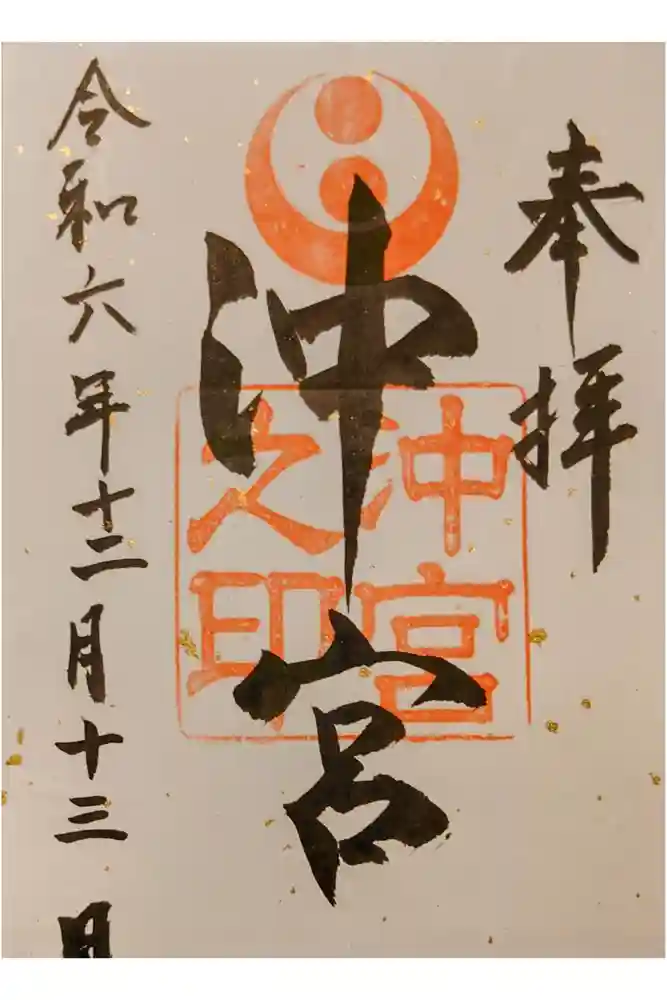 奉拝
沖宮
沖宮
之印
令和六年十二月十三日